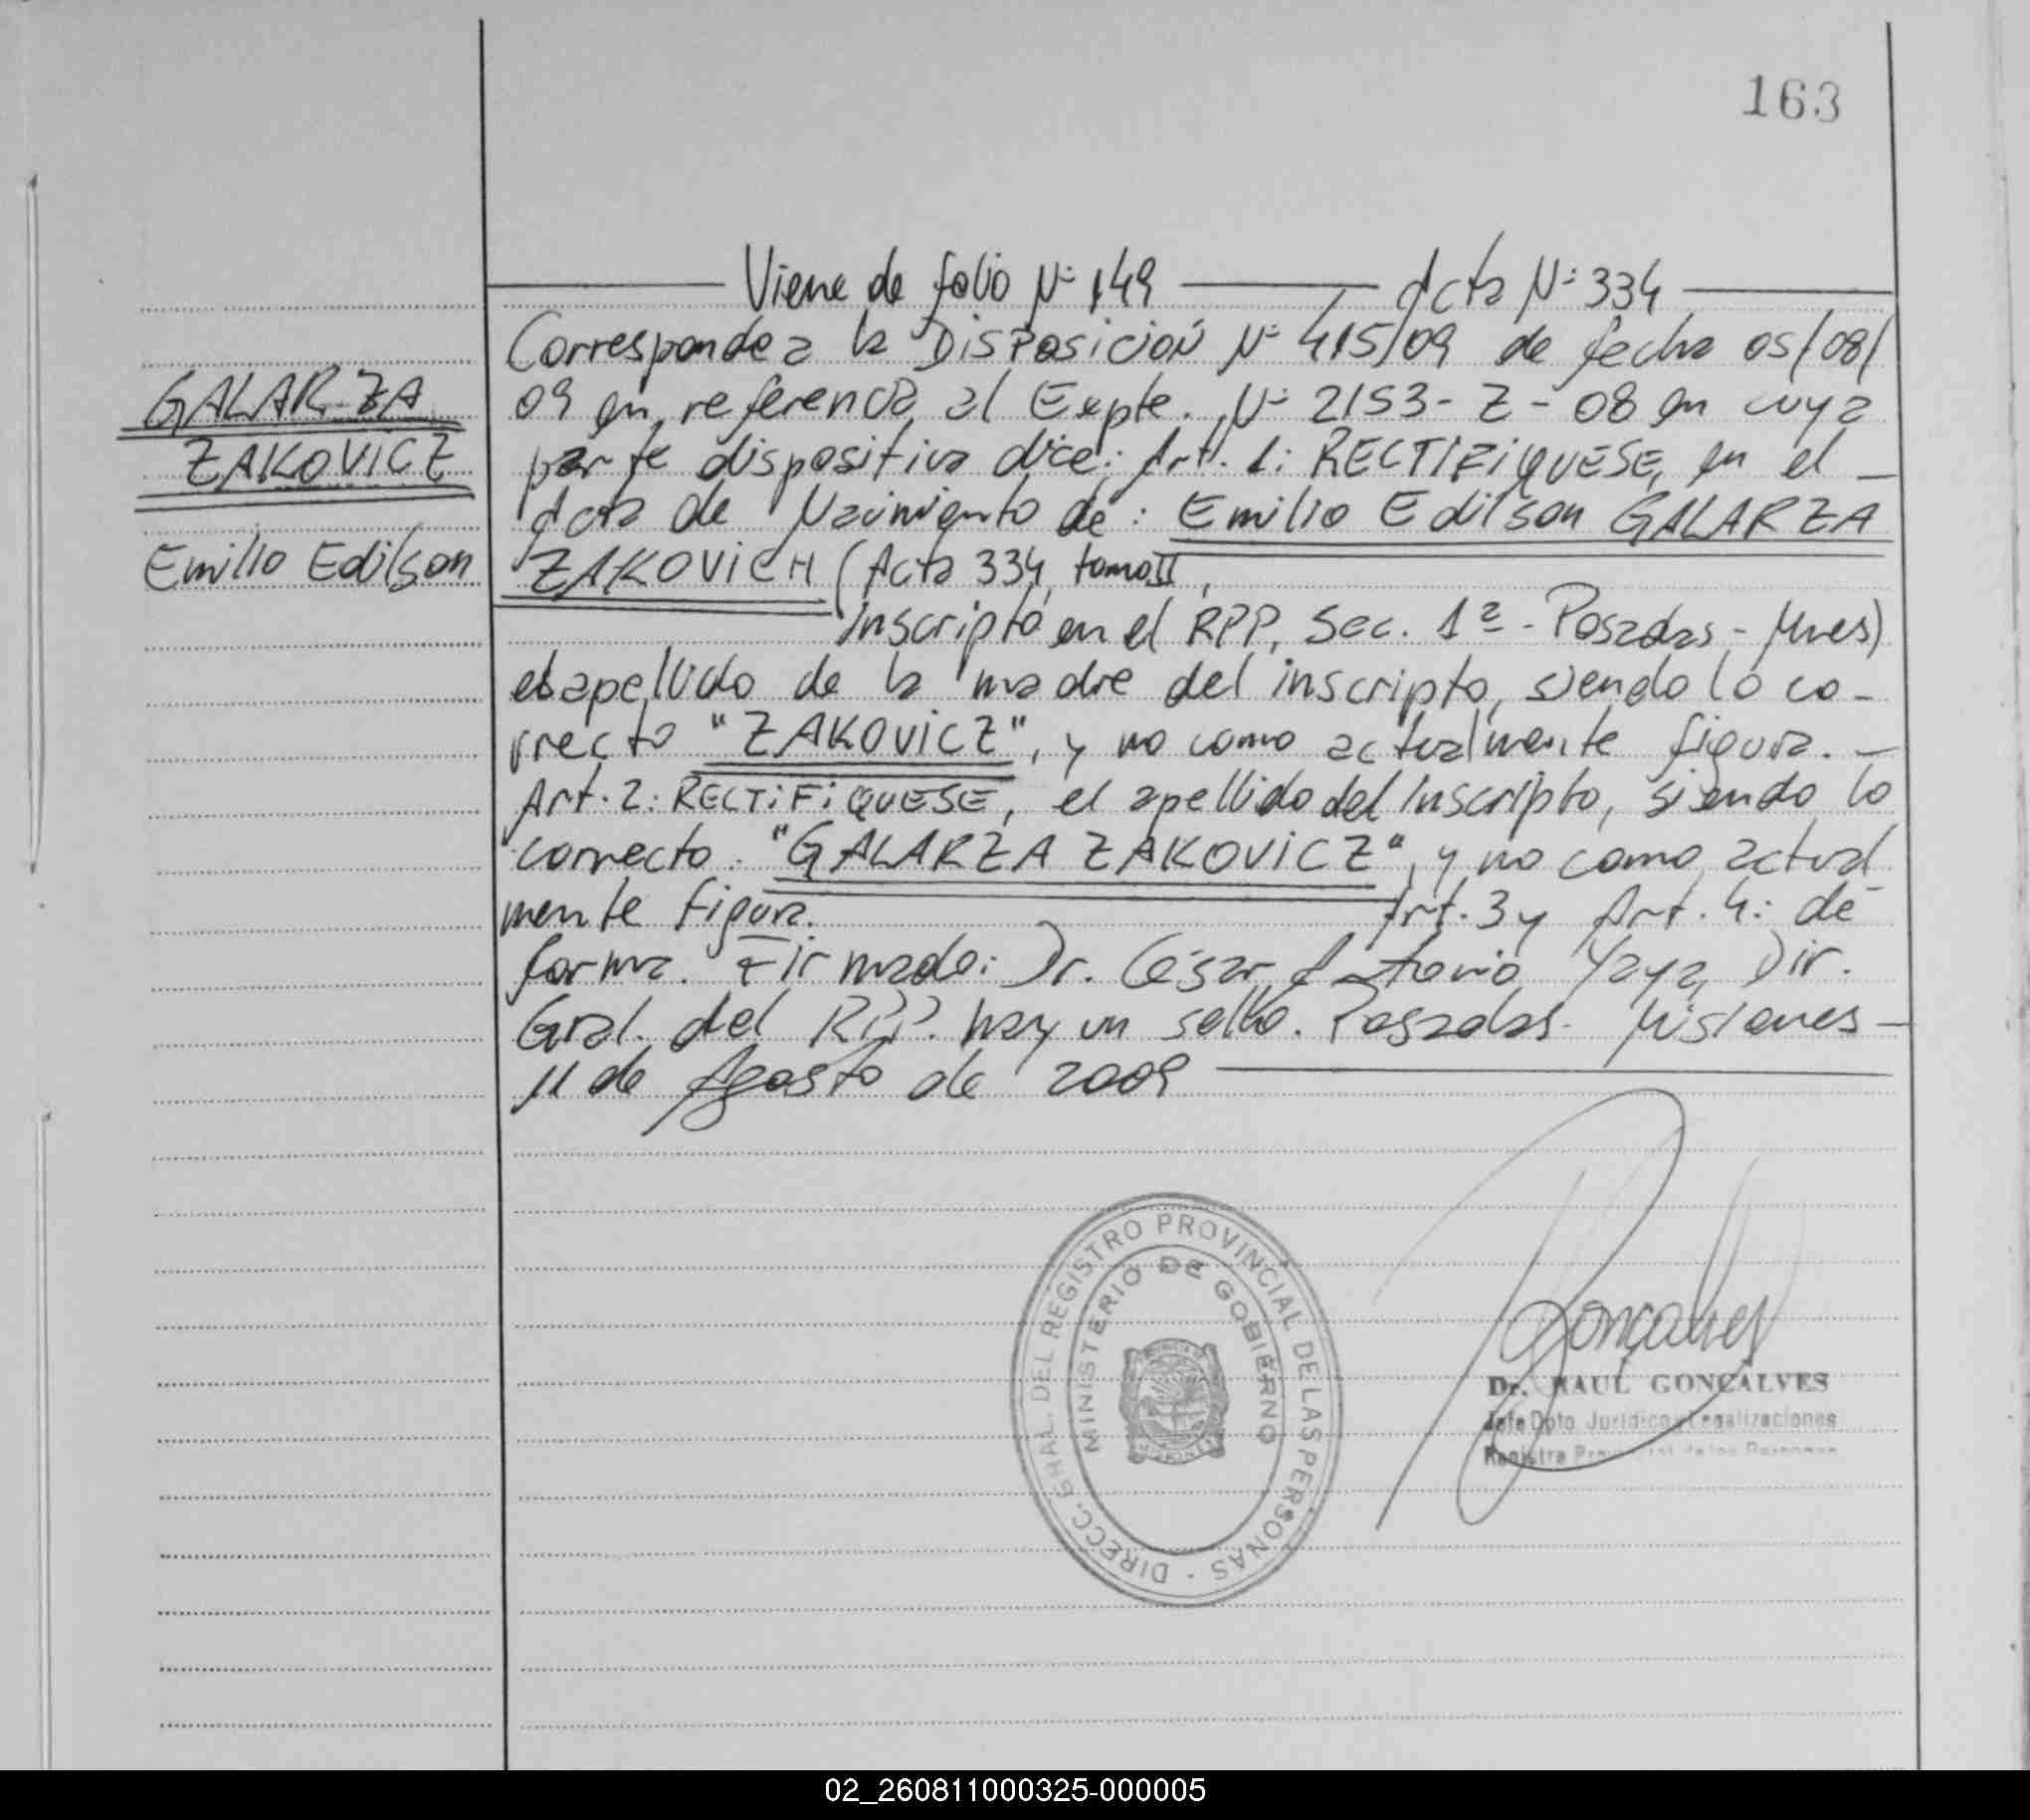 163
Viene de folio Nº 149 Acta Nº 334
Corresponde a la Disposición Nº 415/09 de fecha 05/08/
09 en referencia al Expte. Nº 2153-Z-08 en cuya
parte dispositiva dice: Art. 1: RECTIFIQUESE, en el
Acta de Nacimiento de: Emilio Edilson GALARZA
ZAKOVICH (Acta 334, tomo II,
inscripto en el RPP, Sec. 1ª - Posadas - Mnes)
el apellido de la madre del inscripto, siendo lo co-
rrecto "ZAKOVICZ", y no como actualmente figura. -
Art. 2: RECTIFIQUESE, el apellido del Inscripto, siendo lo
correcto "GALARZA ZAKOVICZ", y no como actual
mente figura. Art. 3 y Art. 4: de
forma. Firmado: Dr. César Antonio Yaya, Dir.
Gral. del RPP. hay un sello. Posadas - Misiones -
11 de Agosto de 2009
GALARZA
ZAKOVICZ
Emilio Edilson
DIRECC. GRAL. DEL REGISTRO PROVINCIAL DE LAS PERSONAS
MINISTERIO DE GOBIERNO
MISIONES
Gonçalves
Dr. RAUL GONÇALVES
Jefe Dpto Juridico y Legalizaciones
Registro Provincial de las Personas
02_260811000325-000005